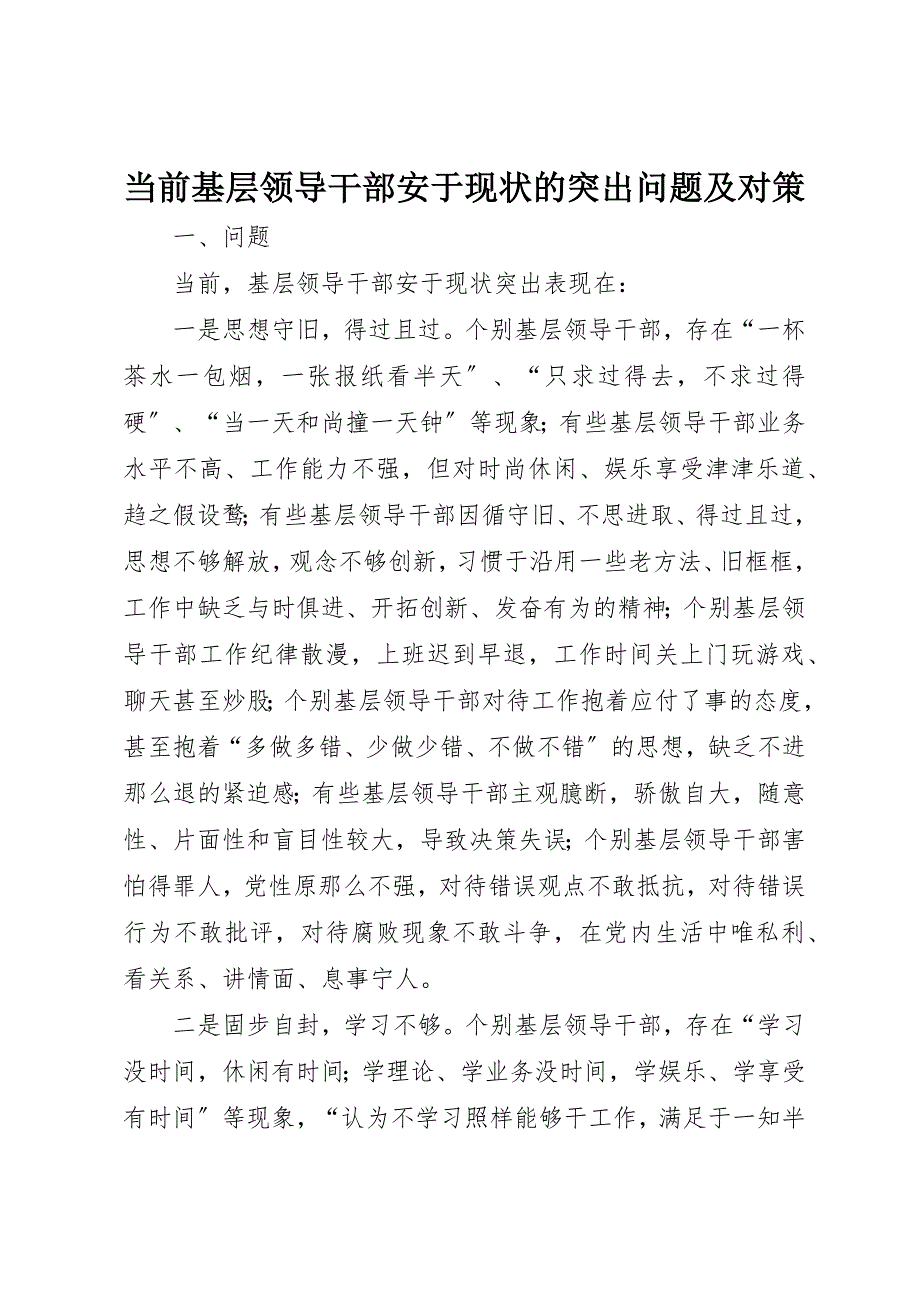 当前基层领导干部安于现状的突出问题及对策
一、问题
当前，基层领导干部安于现状突出表现在：
一是思想守旧，得过且过。个别基层领导干部，存在“一杯
茶水一包烟，一张报纸看半天〞、“只求过得去，不求过得
硬〞、“当一天和尚撞一天钟〞等现象；有些基层领导干部业务
水平不高、工作能力不强，但对时尚休闲、娱乐享受津津乐道、
趋之假设鹜；有些基层领导干部因循守旧、不思进取、得过且过，
思想不够解放，观念不够创新，习惯于沿用一些老方法、旧框框，
工作中缺乏与时俱进、开拓创新、发奋有为的精神；个别基层领
导干部工作纪律散漫，上班迟到早退，工作时间关上门玩游戏、
聊天甚至炒股；个别基层领导干部对待工作抱着应付了事的态度，
甚至抱着“多做多错、少做少错、不做不错〞的思想，缺乏不进
那么退的紧迫感；有些基层领导干部主观臆断，骄傲自大，随意
性、片面性和盲目性较大，导致决策失误；个别基层领导干部害
怕得罪人，党性原那么不强，对待错误观点不敢抵抗，对待错误
行为不敢批评，对待腐败现象不敢斗争，在党内生活中唯私利、
看关系、讲情面、息事宁人。
二是固步自封，学习不够。个别基层领导干部，存在“学习
没时间，休闲有时间；学理论、学业务没时间，学娱乐、学享受
有时间〞等现象，“认为不学习照样能够干工作，满足于一知半